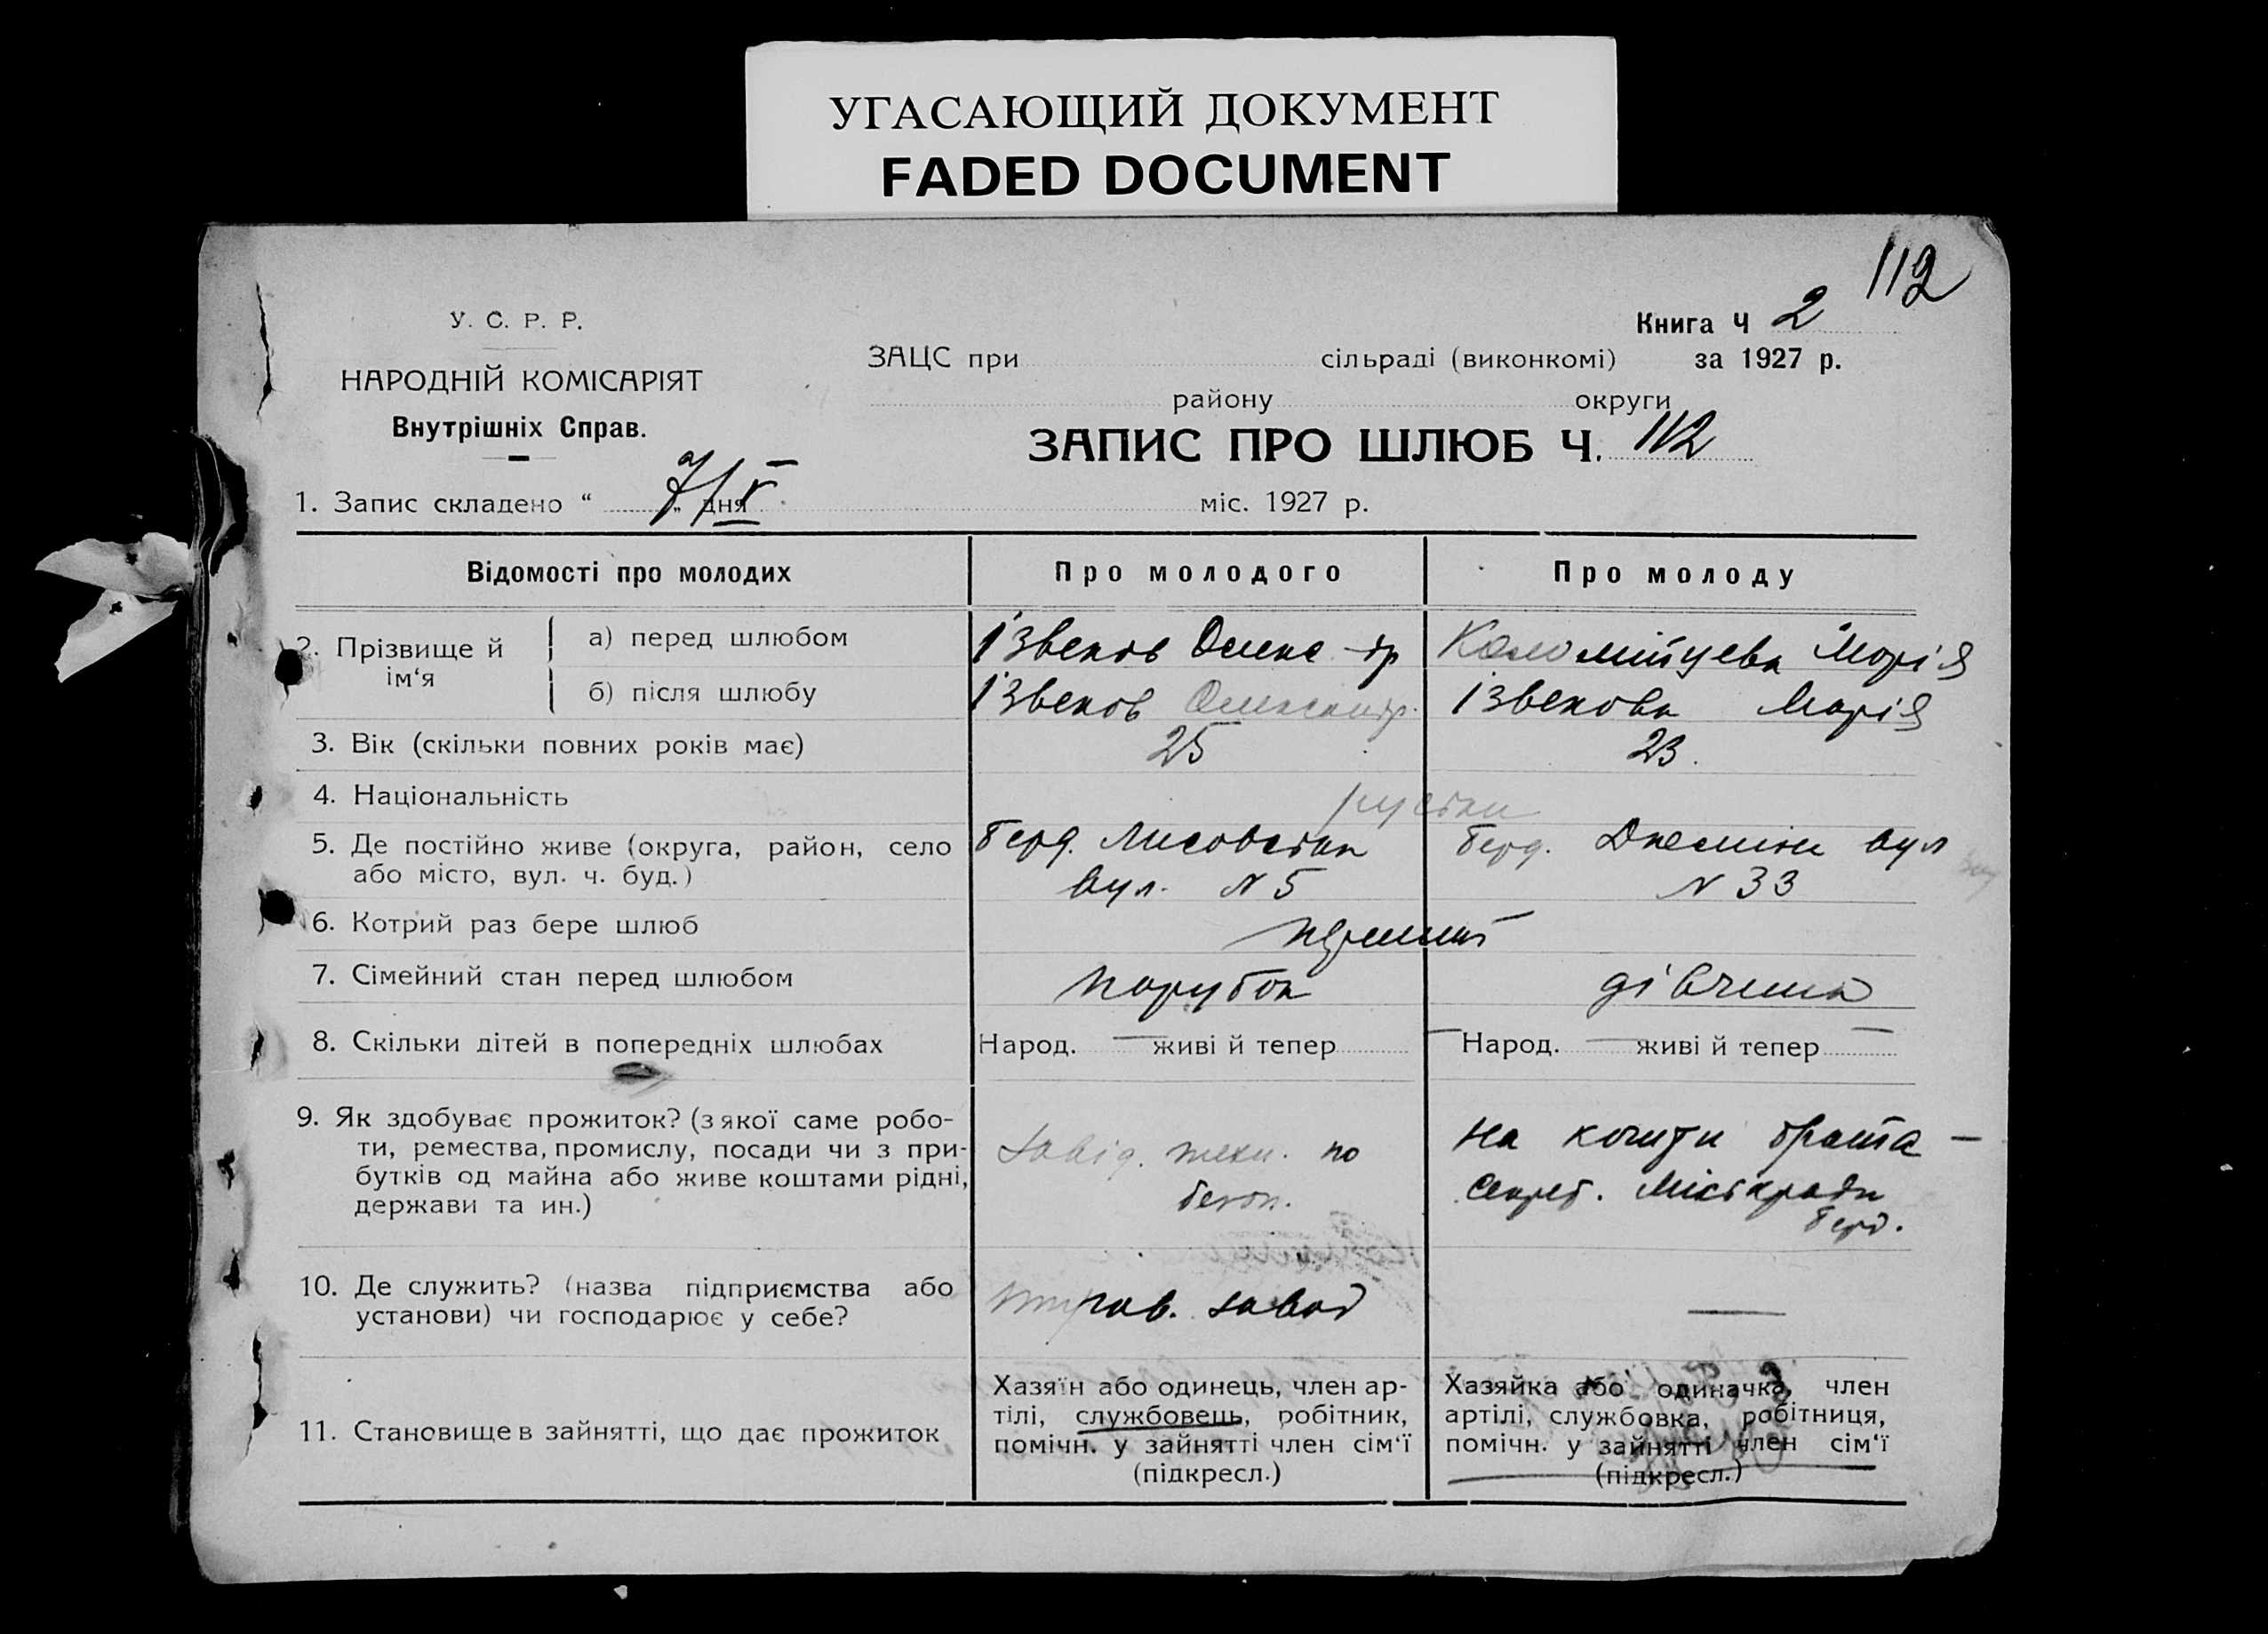 УГАСАЮЩИЙ ДОКУМЕНТ
FADED DOCUMENT
112
У. С. Р. Р.
НАРОДНІЙ КОМІСАРІЯТ
Внутрішніх Справ.
Книга Ч 2
ЗАЦС при сільраді (виконкомі) за 1927 р.
району округи
ЗАПИС ПРО ШЛЮБ Ч. 112
1. Запис складено “ 7/V „ дня міс. 1927 р.
Відомості про молодих Про молодого Про молоду
2. Прізвище й ім‘я
а) перед шлюбом Ізвеков Олекс-др Коломійцева Марія
б) після шлюбу Ізвеков Олександр. Ізвекова Марія
3. Вік (скільки повних років має) 25 23.
4. Національність
5. Де постійно живе (округа, район, село Берд. Лисовська Берд. вул
або місто, вул. ч. буд.) вул. N 5 N 33
6. Котрий раз бере шлюб перший
7. Сімейний стан перед шлюбом парубок дівчина
8. Скільки дітей в попередніх шлюбах Народ. — живі й тепер — Народ. — живі й тепер —
9. Як здобуває прожиток? (з якої саме робо-
ти, ремества, промислу, посади чи з при-
бутків од майна або живе коштами рідні,
держави та ин.)
Завід. техн. по
на кошти брата —
секрет. Міськради
Берд.
10. Де служить? (назва підприємства або
установи) чи господарює у себе?
завод
—
11. Становище в зайнятті, що дає прожиток
Хазяїн або одинець, член ар-
тілі, службовець, робітник,
помічн. у зайнятті член сім‘ї
(підкресл.)
Хазяйка або одиначка, член
артілі, службовка, робітниця,
помічн. у зайнятті член сім‘ї
(підкресл.)